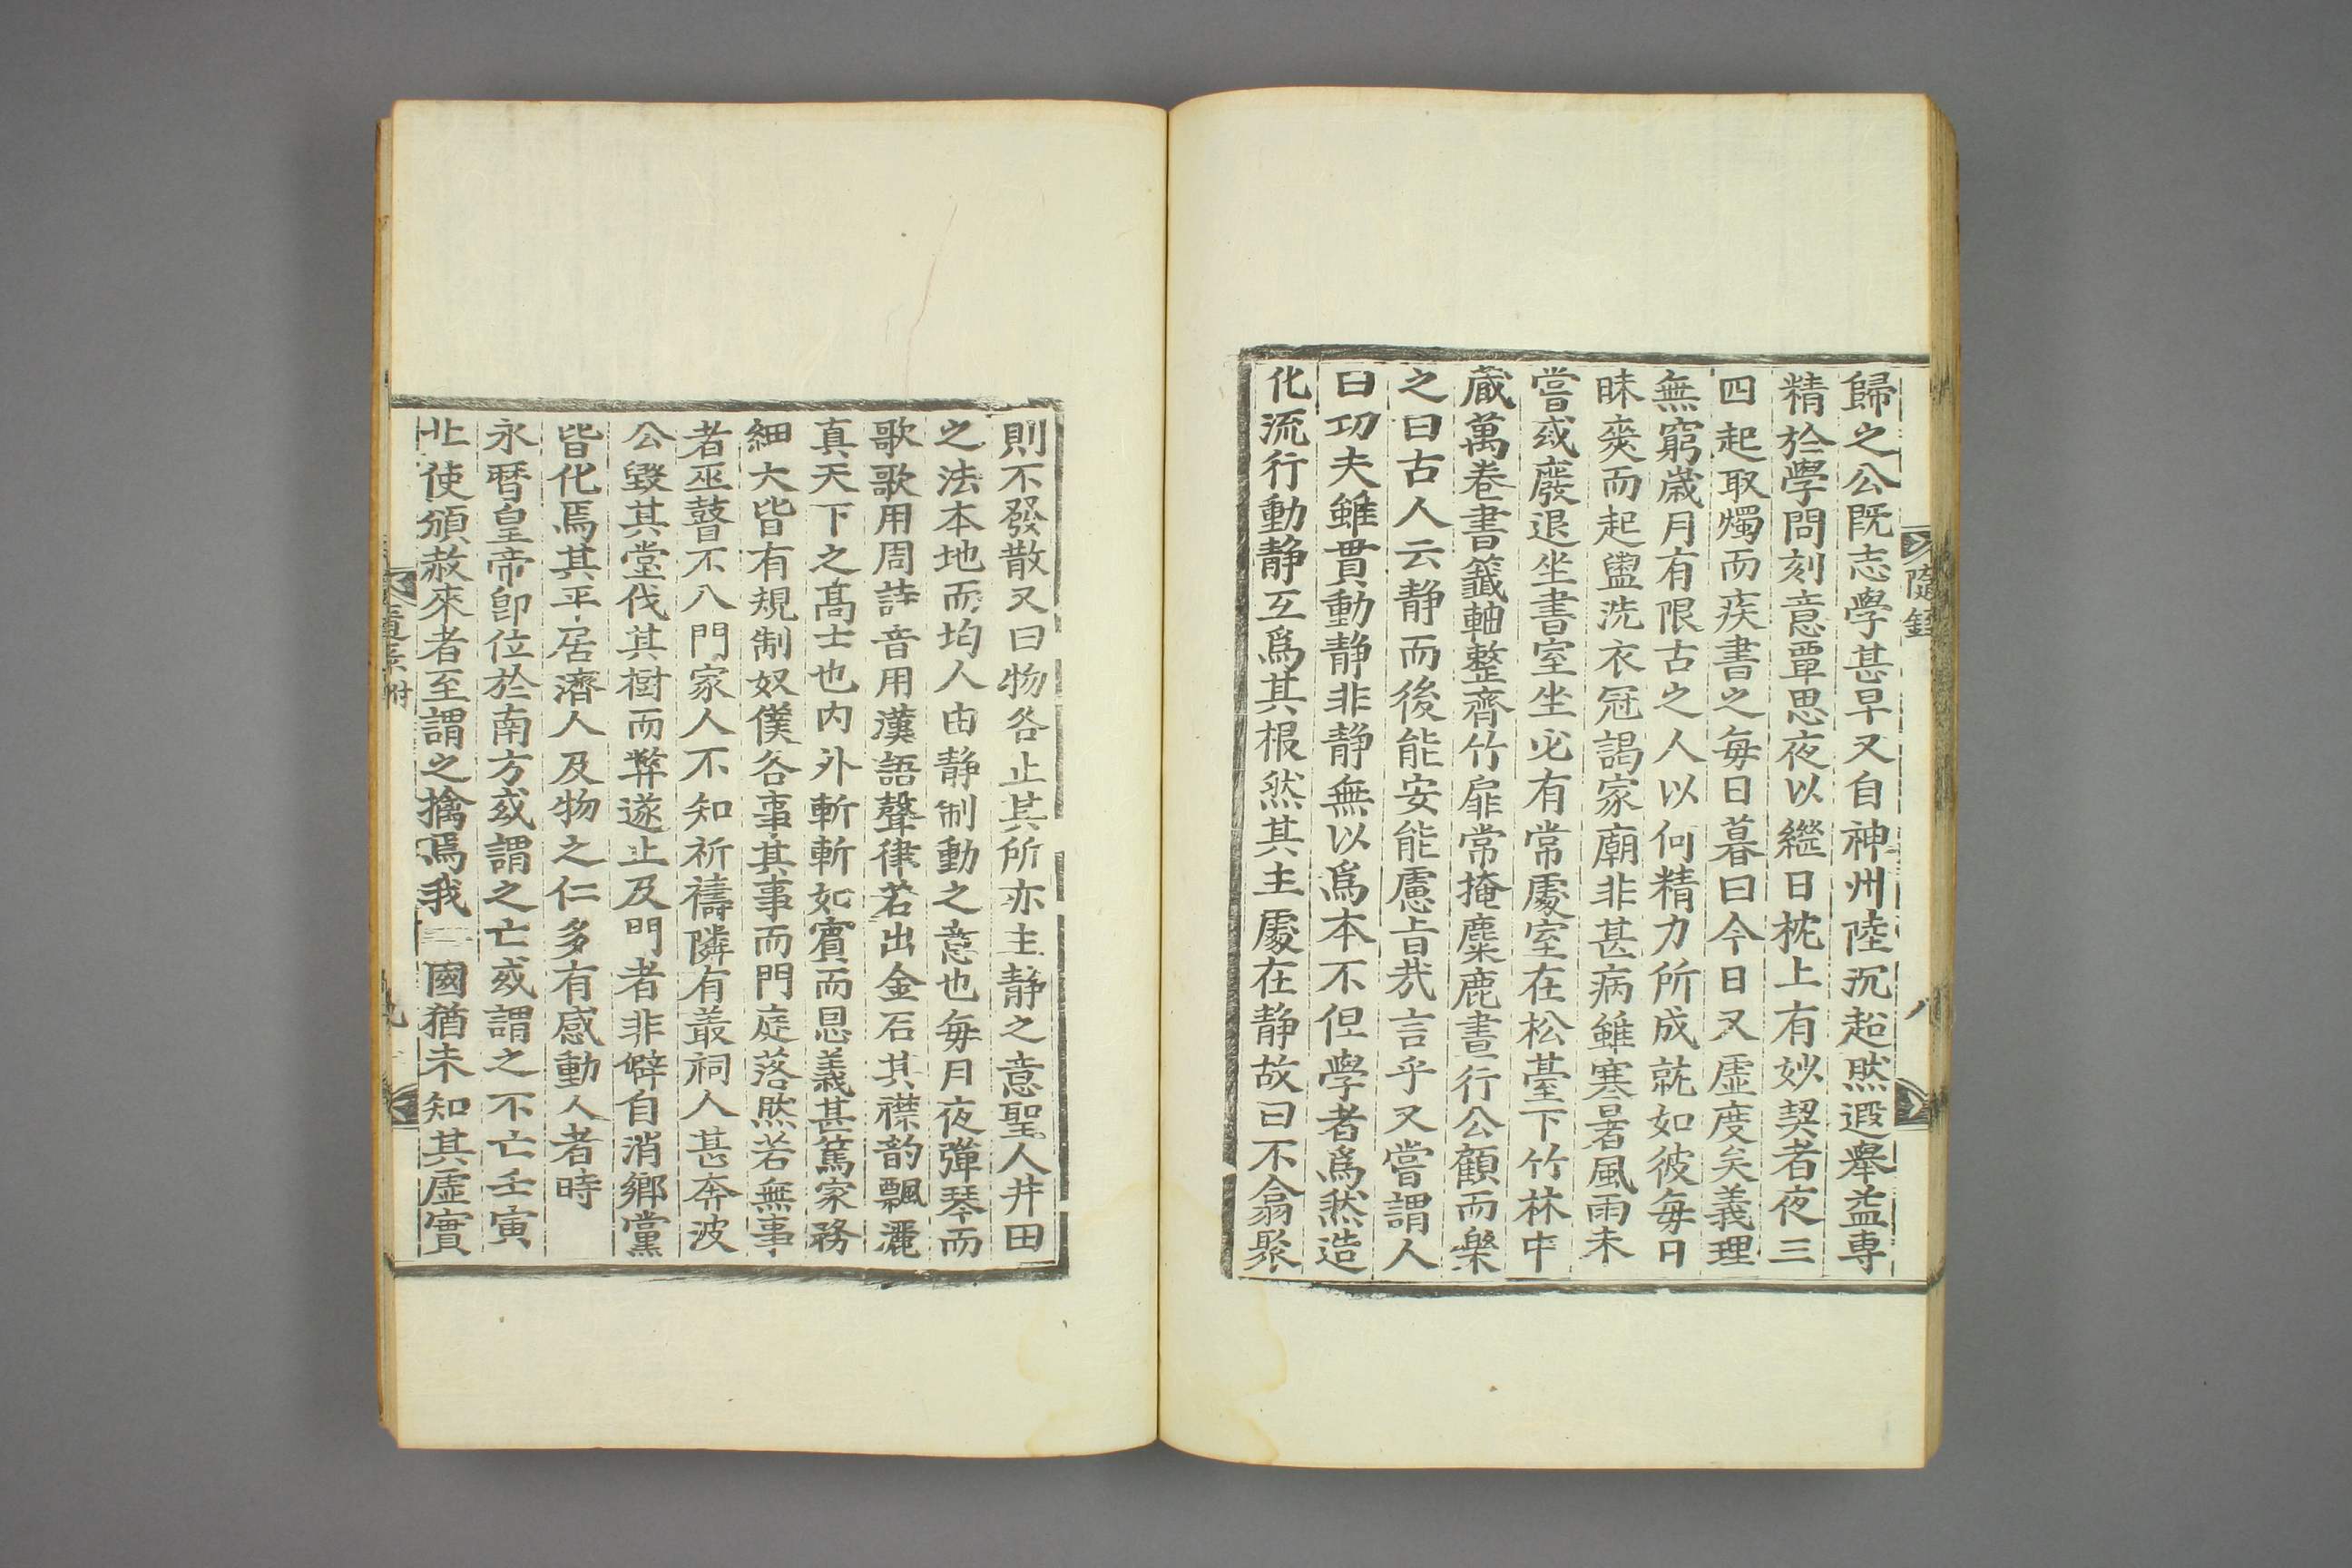 隨錄
八
歸之公旣志學甚早又自神州陸沉超然遐擧益專
精於學問刻意覃思夜以繼日枕上有妙契者夜三
四起取燭而疾書之每日暮曰今日又虛度矣義理
無窮歲月有限古之人以何精力所成就如彼每日
昧爽而起盥洗衣冠謁家廟非甚病雖寒暑風雨未
嘗或廢退坐書室坐必有常處室在松臺下竹林中
藏萬卷書籤軸整齊竹扉常掩麋鹿晝行公顧而樂
之曰古人云静而後能安能慮旨㢤言乎又嘗謂人
曰功夫雖貫動静非静無以爲本不但學者爲然造
化流行動静互爲其根然其主處在静故曰不翕聚
則不發散又曰物各止其所亦主静之意聖人井田
之法本地而均人由静制動之意也每月夜彈琴而
歌歌用周詩音用漢語聲律若出金石其襟韵飄灑
真天下之高士也内外斬斬如賓而恩義甚篤家務
細大皆有規制奴僕各事其事而門庭落然若無事
者巫瞽不入門家人不知祈禱隣有叢祠人甚奔波
公毀其堂伐其樹而弊遂止及門者非僻自消鄉黨
皆化焉其平居濟人及物之仁多有感動人者時
永曆皇帝卽位於南方或謂之亡或謂之不亡壬寅
北使頒赦來者至謂之擒焉我 國猶未知其虛實
附
九